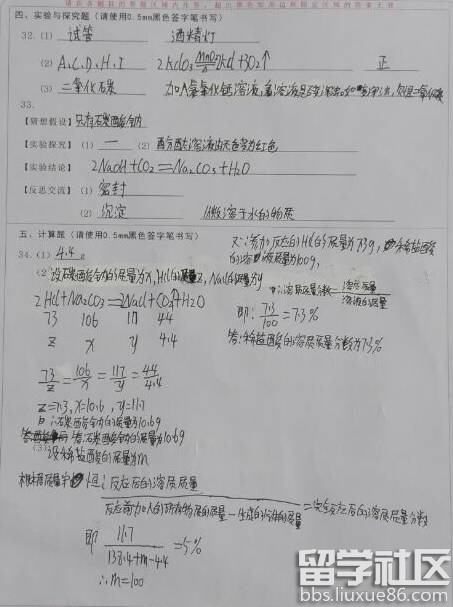 请在各题目的答题区域内作答，超出黑色矩形边框限定区域的答案无效
四、实验与探究题（请使用0.5mm黑色签字笔书写）
32.（1） 试管 酒精灯
（2） A、C、D、H、I 2KClO₃ MnO₂ △ 2KCl+3O₂↑ 正
（3） 二氧化碳 加入氢氧化钙溶液，看溶液是否
33.
【猜想假设】 只有碳酸钠
【实验探究】（1） 一 （2） 酚酞溶液由无色变为红色
【实验结论】 2NaOH+CO₂=Na₂CO₃+H₂O
【反思交流】（1） 密封
（2） 沉淀 微溶于水的物质
五、计算题（请使用0.5mm黑色签字笔书写）
34.（1） 4.4 g
（2 设碳酸钠的质量为x，HCl的质量z，NaCl的质量y
2HCl+Na₂CO₃=2NaCl+CO₂↑+H₂O
73 106 117 44
z x y 4.4
73/z=106/x=117/y=44/4.4
z=7.3，x=10.6，y=11.7
∴碳酸钠的质量为10.6g
答：碳酸钠的质量为10.6g
（3） 设稀盐酸的质量为m
根据质量守恒：反应后的溶质质量
反应前加入的所有物质的质量－生成的气体的质量 =完全反应后的溶质质量分数
即 11.7/(133.4+m-4.4)=5%
∴m=100
又∵参加反应的HCl的质量为7.3g，稀盐酸
溶液质量为100g，
∴溶质质量分数=溶质质量/溶液的质量
即：7.3/100=7.3%
答：稀盐酸的溶质质量分数为7.3%
留学社区
bbs.liuxue86.com